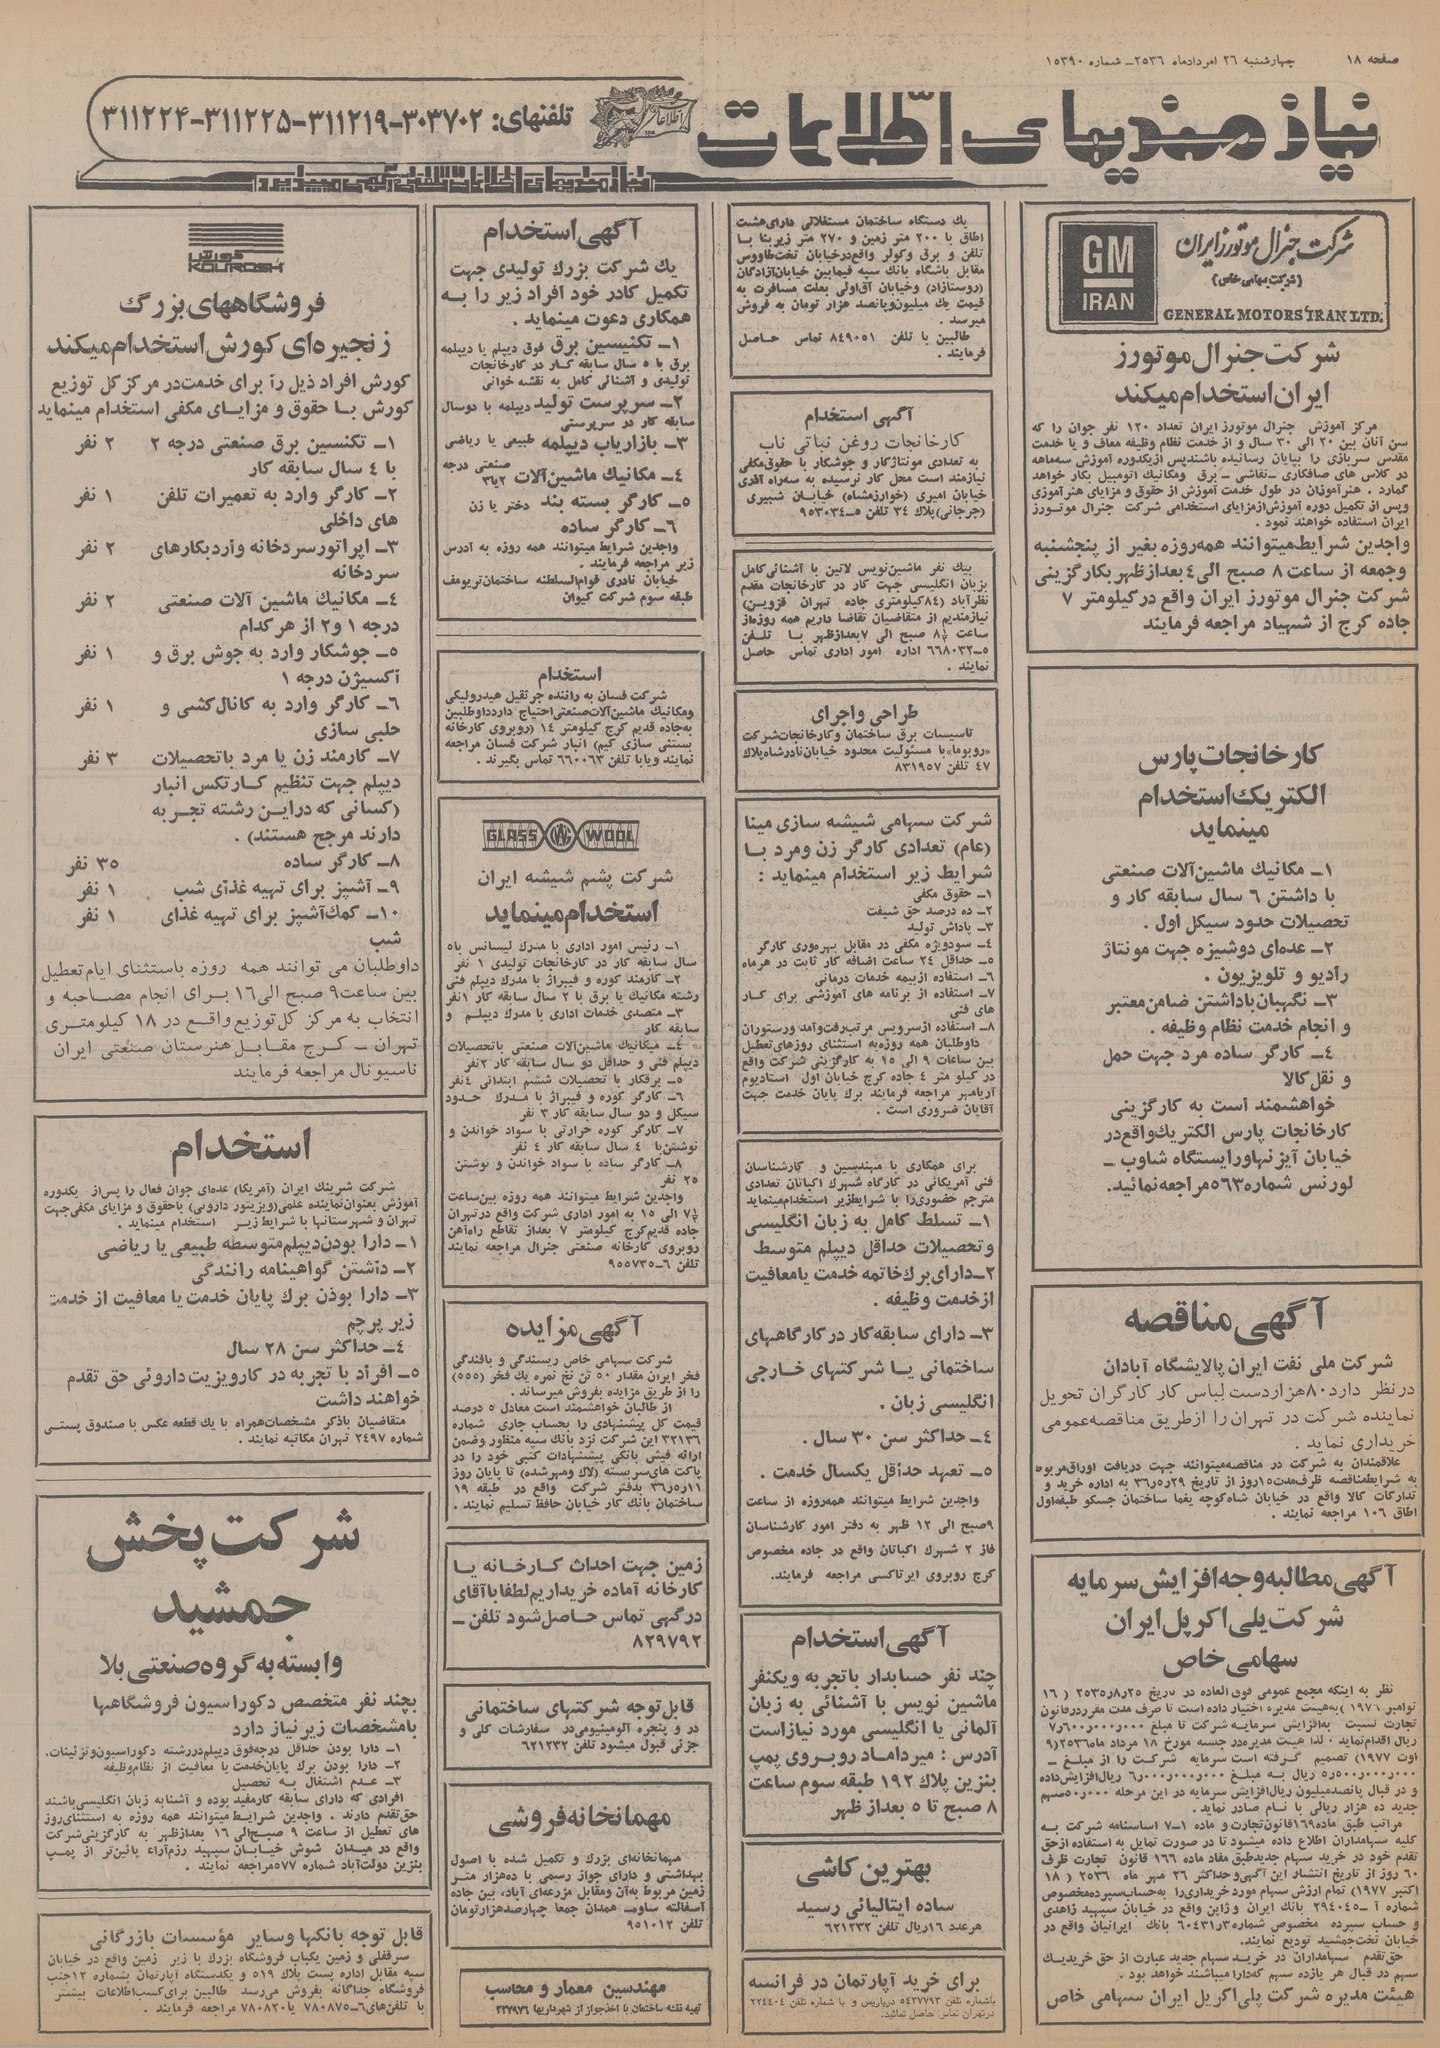 صفحه ۱۸
چهارشنبه ۲۶ امردادماه ۲۵۳۶ــ شماره ۱۵۳۹۰
نیازمندیهای اطلاعات
تلفنهای: ۳۰۳۷۰۲-۳۱۱۲۱۹-۳۱۱۲۲۵-۳۱۱۲۲۴
نیازمندیهای اطلاعات تلفنی آگهی میپذیرد
شرکت جنرال موتورز ایران
(شرکت سهامی خاص)
GM
IRAN
GENERAL MOTORS IRAN LTD.
شرکت جنرال موتورز
ایران استخدام میکند
مرکز آموزش جنرال موتورز ایران تعداد ۱۲۰ نفر جوان را که
سن آنان بین ۲۰ الی ۳۰ سال و از خدمت نظام وظیفه معاف و یا خدمت
مقدس سربازی را بپایان رسانیده باشند پس از یکدوره آموزش سه ماهه
در کلاس های صافکاری ـ نقاشی ـ برق و مکانیک اتومبیل بکار خواهد
گمارد . هنرآموزان در طول خدمت آموزش از حقوق و مزایای هنرآموزی
وپس از تکمیل دوره آموزش از مزایای استخدامی شرکت جنرال موتورز
ایران استفاده خواهند نمود .
واجدین شرایط میتوانند همه روزه بغیر از پنجشنبه
وجمعه از ساعت ۸ صبح الی ۴ بعدازظهر بکارگزینی
شرکت جنرال موتورز ایران واقع در کیلومتر ۷
جاده کرج از شهیاد مراجعه فرمایند
کارخانجات پارس
الکتریک استخدام
مینماید
۱ــ مکانیک ماشین آلات صنعتی
با داشتن ۶ سال سابقه کار و
تحصیلات حدود سیکل اول .
۲ــ عده‌ای دوشیزه جهت مونتاژ
رادیو و تلویزیون .
۳ــ نگهبان با داشتن ضامن معتبر
و انجام خدمت نظام وظیفه .
۴ــ کارگر ساده مرد جهت حمل
و نقل کالا
خواهشمند است به کارگزینی
کارخانجات پارس الکتریک واقع در
خیابان آیزنهاور ایستگاه شاوب ــ
لورنس شماره ۵۶۳ مراجعه نمائید.
آگهی مناقصه
شرکت ملی نفت ایران پالایشگاه آبادان
در نظر دارد ۸۰ هزار دست لباس کار کارگران تحویل
نماینده شرکت در تهران را از طریق مناقصه عمومی
خریداری نماید .
علاقمندان به شرکت در مناقصه میتوانند جهت دریافت اوراق مربوط
به شرایط مناقصه ظرف مدت ۱۵ روز از تاریخ ۲۹ر۵ر۳۶ به اداره خرید و
تدارکات کالا واقع در خیابان شاه کوچه یغما ساختمان جسکو طبقه اول
اطاق ۱۰۶ مراجعه نمایند .
آگهی مطالبه وجه افزایش سرمایه
شرکت پلی اکریل ایران
سهامی خاص
نظر به اینکه مجمع عمومی فوق العاده در تاریخ ۲۵ر۸ر۲۵۳۵ ( ۱۶
نوامبر ۱۹۷۶ ) به هیئت مدیره اختیار داده است تا ظرف مدت مقرر در قانون
تجارت نسبت به افزایش سرمایه شرکت تا مبلغ ۷ر۶۰۰ر۰۰۰ر۰۰۰
ریال اقدام نماید ، لذا هیئت مدیره در جلسه مورخ ۱۸ مرداد ماه ۲۵۳۶ (۹
اوت ۱۹۷۷) تصمیم گرفته است سرمایه شرکت را از مبلغ ــ
۵ر۵۰۰ر۰۰۰ر۰۰۰ ریال به مبلغ ۶ر۰۰۰ر۰۰۰ر۰۰۰ ریال افزایش داده
و در قبال پانصد میلیون ریال افزایش سرمایه در این مرحله ۵۰ر۰۰۰ سهم
جدید ده هزار ریالی با نام صادر نماید .
مراتب طبق ماده ۱۶۹ قانون تجارت و ماده ۱ـ۷ اساسنامه شرکت به
کلیه سهامداران اطلاع داده میشود تا در صورت تمایل به استفاده از حق
تقدم خود در خرید سهام جدید طبق مفاد ماده ۱۶۶ قانون تجارت ظرف
۶۰ روز از تاریخ انتشار این آگهی و حداکثر ۲۶ مهر ماه ۲۵۳۶ ( ۱۸
اکتبر ۱۹۷۷) تمام ارزش سهام مورد خریداری را به حساب سپرده مخصوص
شماره آ ــ ۲۹۴۰۴۵ بانک ایران و ژاپن واقع در خیابان سپهبد زاهدی
و حساب سپرده مخصوص شماره ۶۰۴۳۱ر۳ بانک ایرانیان واقع در
خیابان تخت جمشید تودیع نمایند.
حق تقدم سهامداران در خرید سهام جدید عبارت از حق خرید یک
سهم در قبال هر یازده سهم که دارا میباشند خواهد بود .
هیئت مدیره شرکت پلی اکریل ایران سهامی خاص
یک دستگاه ساختمان مستقلاتی دارای هشت
اطاق با ۲۰۰ متر زمین و ۲۷۰ متر زیر بنا با
تلفن و برق و کولر واقع در خیابان تخت طاووس
مقابل باشگاه بانک سپه فیمابین خیابان آزادگان
(روستازاد) و خیابان آق‌اولی بعلت مسافرت به
قیمت یک میلیون و پانصد هزار تومان به فروش
میرسد .
طالبین با تلفن ۸۴۹۰۵۱ تماس حاصل
فرمایند .
آگهی استخدام
کارخانجات روغن نباتی ناب
به تعدادی مونتاژکار و جوشکار با حقوق مکفی
نیازمند است محل کار نرسیده به سه راه آذری
خیابان امیری (خوارزمشاه) خیابان شبیری
(جرجانی) پلاک ۳۴ تلفن ۵ــ ۹۵۳۰۳۴
بیک نفر ماشین نویس لاتین با آشنائی کامل
بزبان انگلیسی جهت کار در کارخانجات مقدم
نظرآباد (۸۴ کیلومتری جاده تهران قزوین)
نیازمندیم از متقاضیان تقاضا داریم همه روزه از
ساعت ۸½ صبح الی ۷ بعدازظهر با تلفن
۵ــ۶۶۸۰۳۲ اداره امور اداری تماس حاصل
نمایند .
طراحی و اجرای
تاسیسات برق ساختمان و کارخانجات شرکت
«روبوما» با مسئولیت محدود خیابان نادرشاه پلاک
۴۷ تلفن ۸۳۱۹۵۷
شرکت سهامی شیشه سازی مینا
(عام) تعدادی کارگر زن و مرد با
شرایط زیر استخدام مینماید :
۱ــ حقوق مکفی
۲ــ ده درصد حق شیفت
۳ــ پاداش تولید
۴ــ سود ویژه مکفی در مقابل بهره‌وری کارگر
۵ــ حداقل ۲۴ ساعت اضافه کار ثابت در هر ماه
۶ــ استفاده از بیمه خدمات درمانی
۷ــ استفاده از برنامه های آموزشی برای کار
های فنی
۸ــ استفاده از سرویس مرتب رفت و آمد و رستوران
داوطلبان همه روزه به استثنای روزهای تعطیل
بین ساعات ۹ الی ۱۵ به کارگزینی شرکت واقع
در کیلو متر ۴ جاده کرج خیابان اول استادیوم
آریامهر مراجعه فرمایند برگ پایان خدمت جهت
آقایان ضروری است .
برای همکاری با مهندسین و کارشناسان
فنی آمریکائی در کارگاه شهرک اکباتان تعدادی
مترجم حضوری را با شرایط زیر استخدام مینماید
۱ــ تسلط کامل به زبان انگلیسی
و تحصیلات حداقل دیپلم متوسط
۲ــ دارای برگ خاتمه خدمت یا معافیت
از خدمت وظیفه .
۳ــ دارای سابقه کار در کارگاههای
ساختمانی یا شرکتهای خارجی
انگلیسی زبان .
۴ــ حداکثر سن ۳۰ سال .
۵ــ تعهد حداقل یکسال خدمت .
واجدین شرایط میتوانند همه روزه از ساعت
۹ صبح الی ۱۲ ظهر به دفتر امور کارشناسان
فاز ۲ شهرک اکباتان واقع در جاده مخصوص
کرج روبروی ایرتاکسی مراجعه فرمایند.
آگهی استخدام
چند نفر حسابدار با تجربه و یکنفر
ماشین نویس با آشنائی به زبان
آلمانی یا انگلیسی مورد نیاز است
آدرس : میرداماد روبروی پمپ
بنزین پلاک ۱۹۲ طبقه سوم ساعت
۸ صبح تا ۵ بعدازظهر
بهترین کاشی
ساده ایتالیائی رسید
هر عدد ۱۶ ریال تلفن ۶۲۱۲۳۲
برای خرید آپارتمان در فرانسه
باشماره تلفن ۵۴۲۷۷۹۳ در پاریس و با شماره تلفن ۲۲۴۴۰۴
در تهران تماس حاصل نمائید.
آگهی استخدام
یک شرکت بزرگ تولیدی جهت
تکمیل کادر خود افراد زیر را به
همکاری دعوت مینماید .
۱ــ تکنیسین برق فوق دیپلم یا دیپلمه
برق با ۵ سال سابقه کار در کارخانجات
تولیدی و آشنائی کامل به نقشه خوانی
۲ــ سرپرست تولید دیپلمه با دوسال
سابقه کار در سرپرستی
۳ــ بازاریاب دیپلمه طبیعی یا ریاضی
۴ــ مکانیک ماشین آلات صنعتی درجه ۲یا۳
۵ــ کارگر بسته بند دختر یا زن
۶ــ کارگر ساده
واجدین شرایط میتوانند همه روزه به آدرس
زیر مراجعه فرمایند .
خیابان نادری قوام السلطنه ساختمان تریومف
طبقه سوم شرکت کیوان
استخدام
شرکت فسان به راننده جرثقیل هیدرولیکی
و مکانیک ماشین آلات صنعتی احتیاج دارد داوطلبین
به جاده قدیم کرج کیلومتر ۱۴ (روبروی کارخانه
بستنی سازی کیم) انبار شرکت فسان مراجعه
نمایند و یا با تلفن ۶۶۰۰۶۳ تماس بگیرند .
GLASS WOOL
شرکت پشم شیشه ایران
استخدام مینماید
۱ــ رئیس امور اداری با مدرک لیسانس با ۵
سال سابقه کار در کارخانجات تولیدی ۱ نفر
۲ــ کارمند کوره و فیبراژ با مدرک دیپلم فنی
رشته مکانیک یا برق با ۲ سال سابقه کار ۱ نفر
۳ــ متصدی خدمات اداری با مدرک دیپلم و
سابقه کار
۴ــ میکانیک ماشین آلات صنعتی با تحصیلات
دیپلم فنی و حداقل دو سال سابقه کار ۲ نفر
۵ــ برقکار با تحصیلات ششم ابتدائی ۴ نفر
۶ــ کارگر کوره و فیبراژ با مدرک حدود
سیکل و دو سال سابقه کار ۳ نفر
۷ــ کارگر کوره حرارتی با سواد خواندن و
نوشتن با ۴ سال سابقه کار ۴ نفر
۸ــ کارگر ساده با سواد خواندن و نوشتن
۲۵ نفر
واجدین شرایط میتوانند همه روزه بین ساعت
۷½ الی ۱۵ به امور اداری شرکت واقع در تهران
جاده قدیم کرج کیلومتر ۷ بعد از تقاطع راه آهن
روبروی کارخانه صنعتی جنرال مراجعه نمایند
تلفن ۶ــ۹۵۵۷۳۵
آگهی مزایده
شرکت سهامی خاص ریسندگی و بافندگی
فخر ایران مقدار ۵۰ تن نخ نمره یک فخر (۵۵۵)
را از طریق مزایده بفروش میرساند .
از طالبان خواهشمند است معادل ۵ درصد
قیمت کل پیشنهادی را بحساب جاری شماره
۳۲۱۳۶ این شرکت نزد بانک سپه منظور وضمن
ارائه فیش بانکی پیشنهادات کتبی خود را در
پاکت های سربسته (لاک و مهر شده) تا پایان روز
۱۱ر۶ر۳۶ بدفتر شرکت واقع در طبقه ۱۹
ساختمان بانک کار خیابان حافظ تسلیم نمایند .
زمین جهت احداث کارخانه یا
کارخانه آماده خریداریم لطفا با آقای
درگهی تماس حاصل شود تلفن ــ
۸۲۹۷۹۲
قابل توجه شرکتهای ساختمانی
در و پنجره آلومینیومی در سفارشات کلی و
جزئی قبول میشود تلفن ۶۲۱۲۳۲
مهمانخانه فروشی
مهمانخانه‌ای بزرگ و تکمیل شده با اصول
بهداشتی و دارای جواز رسمی با ده هزار متر
زمین مربوط به آن و مقابل مزرعه‌ای آباد، بین جاده
آسفالته ساوه همدان جمعا چهارصد هزار تومان
تلفن ۹۵۱۰۱۲
مهندسین معمار و محاسب
تهیه نقشه ساختمان با اخذ جواز از شهرداریها ۲۳۷۹۷۶
کورش
KOUROSH
فروشگاههای بزرگ
زنجیره‌ای کورش استخدام میکند
کورش افراد ذیل را برای خدمت در مرکز کل توزیع
کورش با حقوق و مزایای مکفی استخدام مینماید
۱ــ تکنسین برق صنعتی درجه ۲ ۲ نفر
با ۴ سال سابقه کار
۲ــ کارگر وارد به تعمیرات تلفن ۱ نفر
های داخلی
۳ــ اپراتور سردخانه و وارد بکارهای ۲ نفر
سردخانه
۴ــ مکانیک ماشین آلات صنعتی ۲ نفر
درجه ۱ و ۲ از هر کدام
۵ــ جوشکار وارد به جوش برق و ۱ نفر
اکسیژن درجه ۱
۶ــ کارگر وارد به کانال کشی و ۱ نفر
حلبی سازی
۷ــ کارمند زن یا مرد با تحصیلات ۳ نفر
دیپلم جهت تنظیم کارتکس انبار
(کسانی که در این رشته تجربه
دارند مرجح هستند) .
۸ــ کارگر ساده ۳۵ نفر
۹ــ آشپز برای تهیه غذای شب ۱ نفر
۱۰ــ کمک آشپز برای تهیه غذای ۱ نفر
شب
داوطلبان می توانند همه روزه باستثنای ایام تعطیل
بین ساعت ۹ صبح الی ۱۶ برای انجام مصاحبه و
انتخاب به مرکز کل توزیع واقع در ۱۸ کیلومتری
تهران ــ کرج مقابل هنرستان صنعتی ایران
ناسیونال مراجعه فرمایند
استخدام
شرکت شرینگ ایران (آمریکا) عده‌ای جوان فعال را پس از یکدوره
آموزش بعنوان نماینده علمی (ویزیتور داروئی) با حقوق و مزایای مکفی جهت
تهران و شهرستانها با شرایط زیر استخدام مینماید .
۱ــ دارا بودن دیپلم متوسطه طبیعی یا ریاضی
۲ــ داشتن گواهینامه رانندگی
۳ــ دارا بودن برگ پایان خدمت یا معافیت از خدمت
زیر پرچم
۴ــ حداکثر سن ۲۸ سال
۵ــ افراد با تجربه در کار ویزیت داروئی حق تقدم
خواهند داشت
متقاضیان با ذکر مشخصات همراه با یک قطعه عکس با صندوق پستی
شماره ۲۴۹۷ تهران مکاتبه نمایند .
شرکت پخش
جمشید
وابسته به گروه صنعتی بلا
بچند نفر متخصص دکوراسیون فروشگاهها
با مشخصات زیر نیاز دارد
۱ــ دارا بودن حداقل درجه فوق دیپلم در رشته دکوراسیون و تزئینات.
۲ــ دارا بودن برگ پایان خدمت یا معافیت از نظام وظیفه
۳ــ عدم اشتغال به تحصیل
افرادی که دارای سابقه کار مفید بوده و آشنا به زبان انگلیسی باشند
حق تقدم دارند . واجدین شرایط میتوانند همه روزه به استثنای روز
های تعطیل از ساعت ۹ صبح الی ۱۶ بعدازظهر به کارگزینی شرکت
واقع در میدان شوش خیابان سپهبد رزم آراء پائین تر از پمپ
بنزین دولت آباد شماره ۵۷۷ مراجعه نمایند .
قابل توجه بانکها و سایر مؤسسات بازرگانی
سرقفلی و زمین یکباب فروشگاه بزرگ با زیر زمین واقع در خیابان
سپه مقابل اداره پست پلاک ۵۱۹ و یکدستگاه آپارتمان بشماره ۱۲ جنب
فروشگاه جداگانه بفروش می رسد طالبین برای کسب اطلاعات بیشتر
با تلفن‌های ۶ــ۷۸۰۸۷۵ یا ۷۸۰۸۲۰ مراجعه فرمایند .